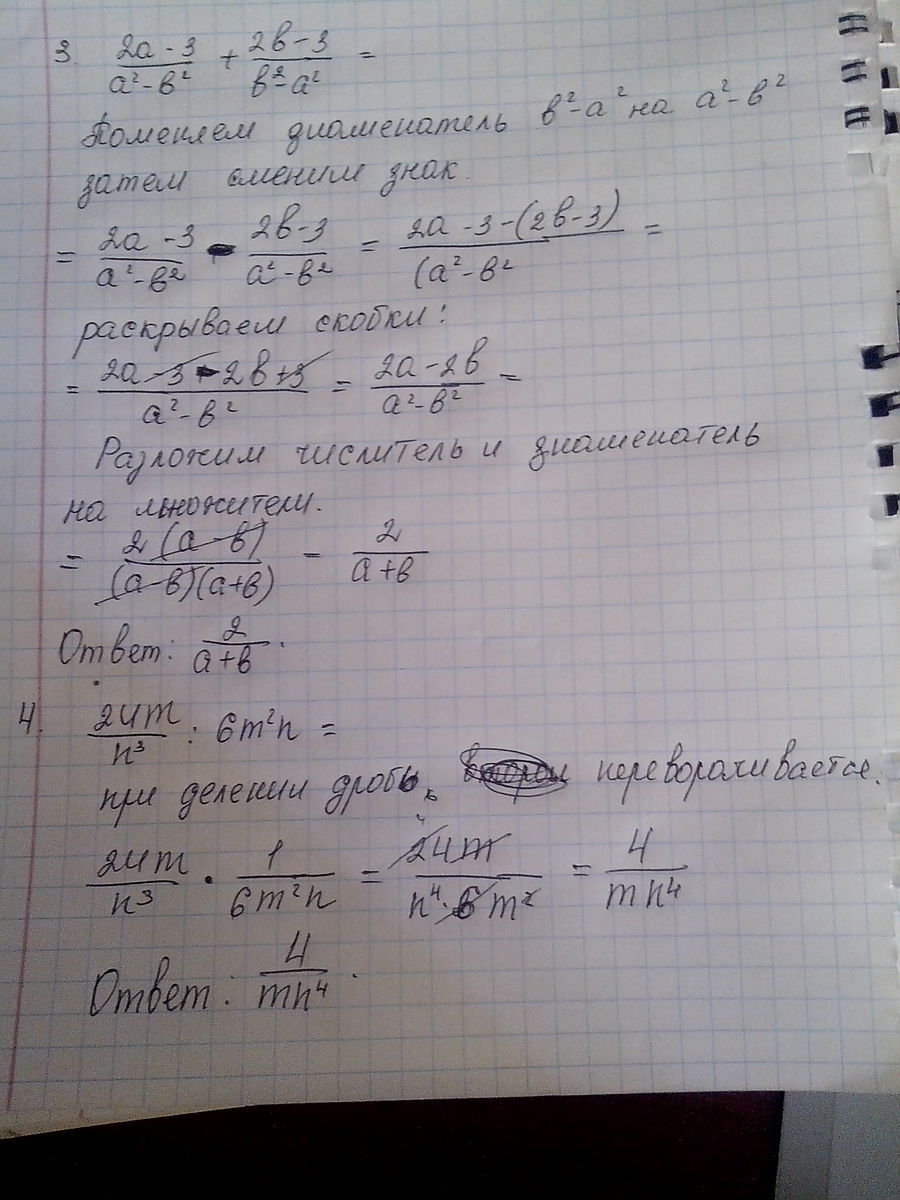 3. (2a-3)/(a²-в²) + (2в-3)/(в²-a²) =
Поменяем знаменатель в²-a² на a²-в²
затем сменим знак.
= (2a-3)/(a²-в²) - (2в-3)/(a²-в²) = (2a-3-(2в-3))/((a²-в²) =
раскрываем скобки:
= (2a-3-2в+3)/(a²-в²) = (2a-2в)/(a²-в²) =
Разложим числитель и знаменатель
на множители.
= (2(a-в))/((a-в)(a+в)) = 2/(a+в)
Ответ: 2/(a+в).
4. 24m/n³ : 6m²n =
при делении дробь переворачивается.
24m/n³ · 1/(6m²n) = 24m/(n⁴·6m²) = 4/(mn⁴)
Ответ: 4/(mn⁴).